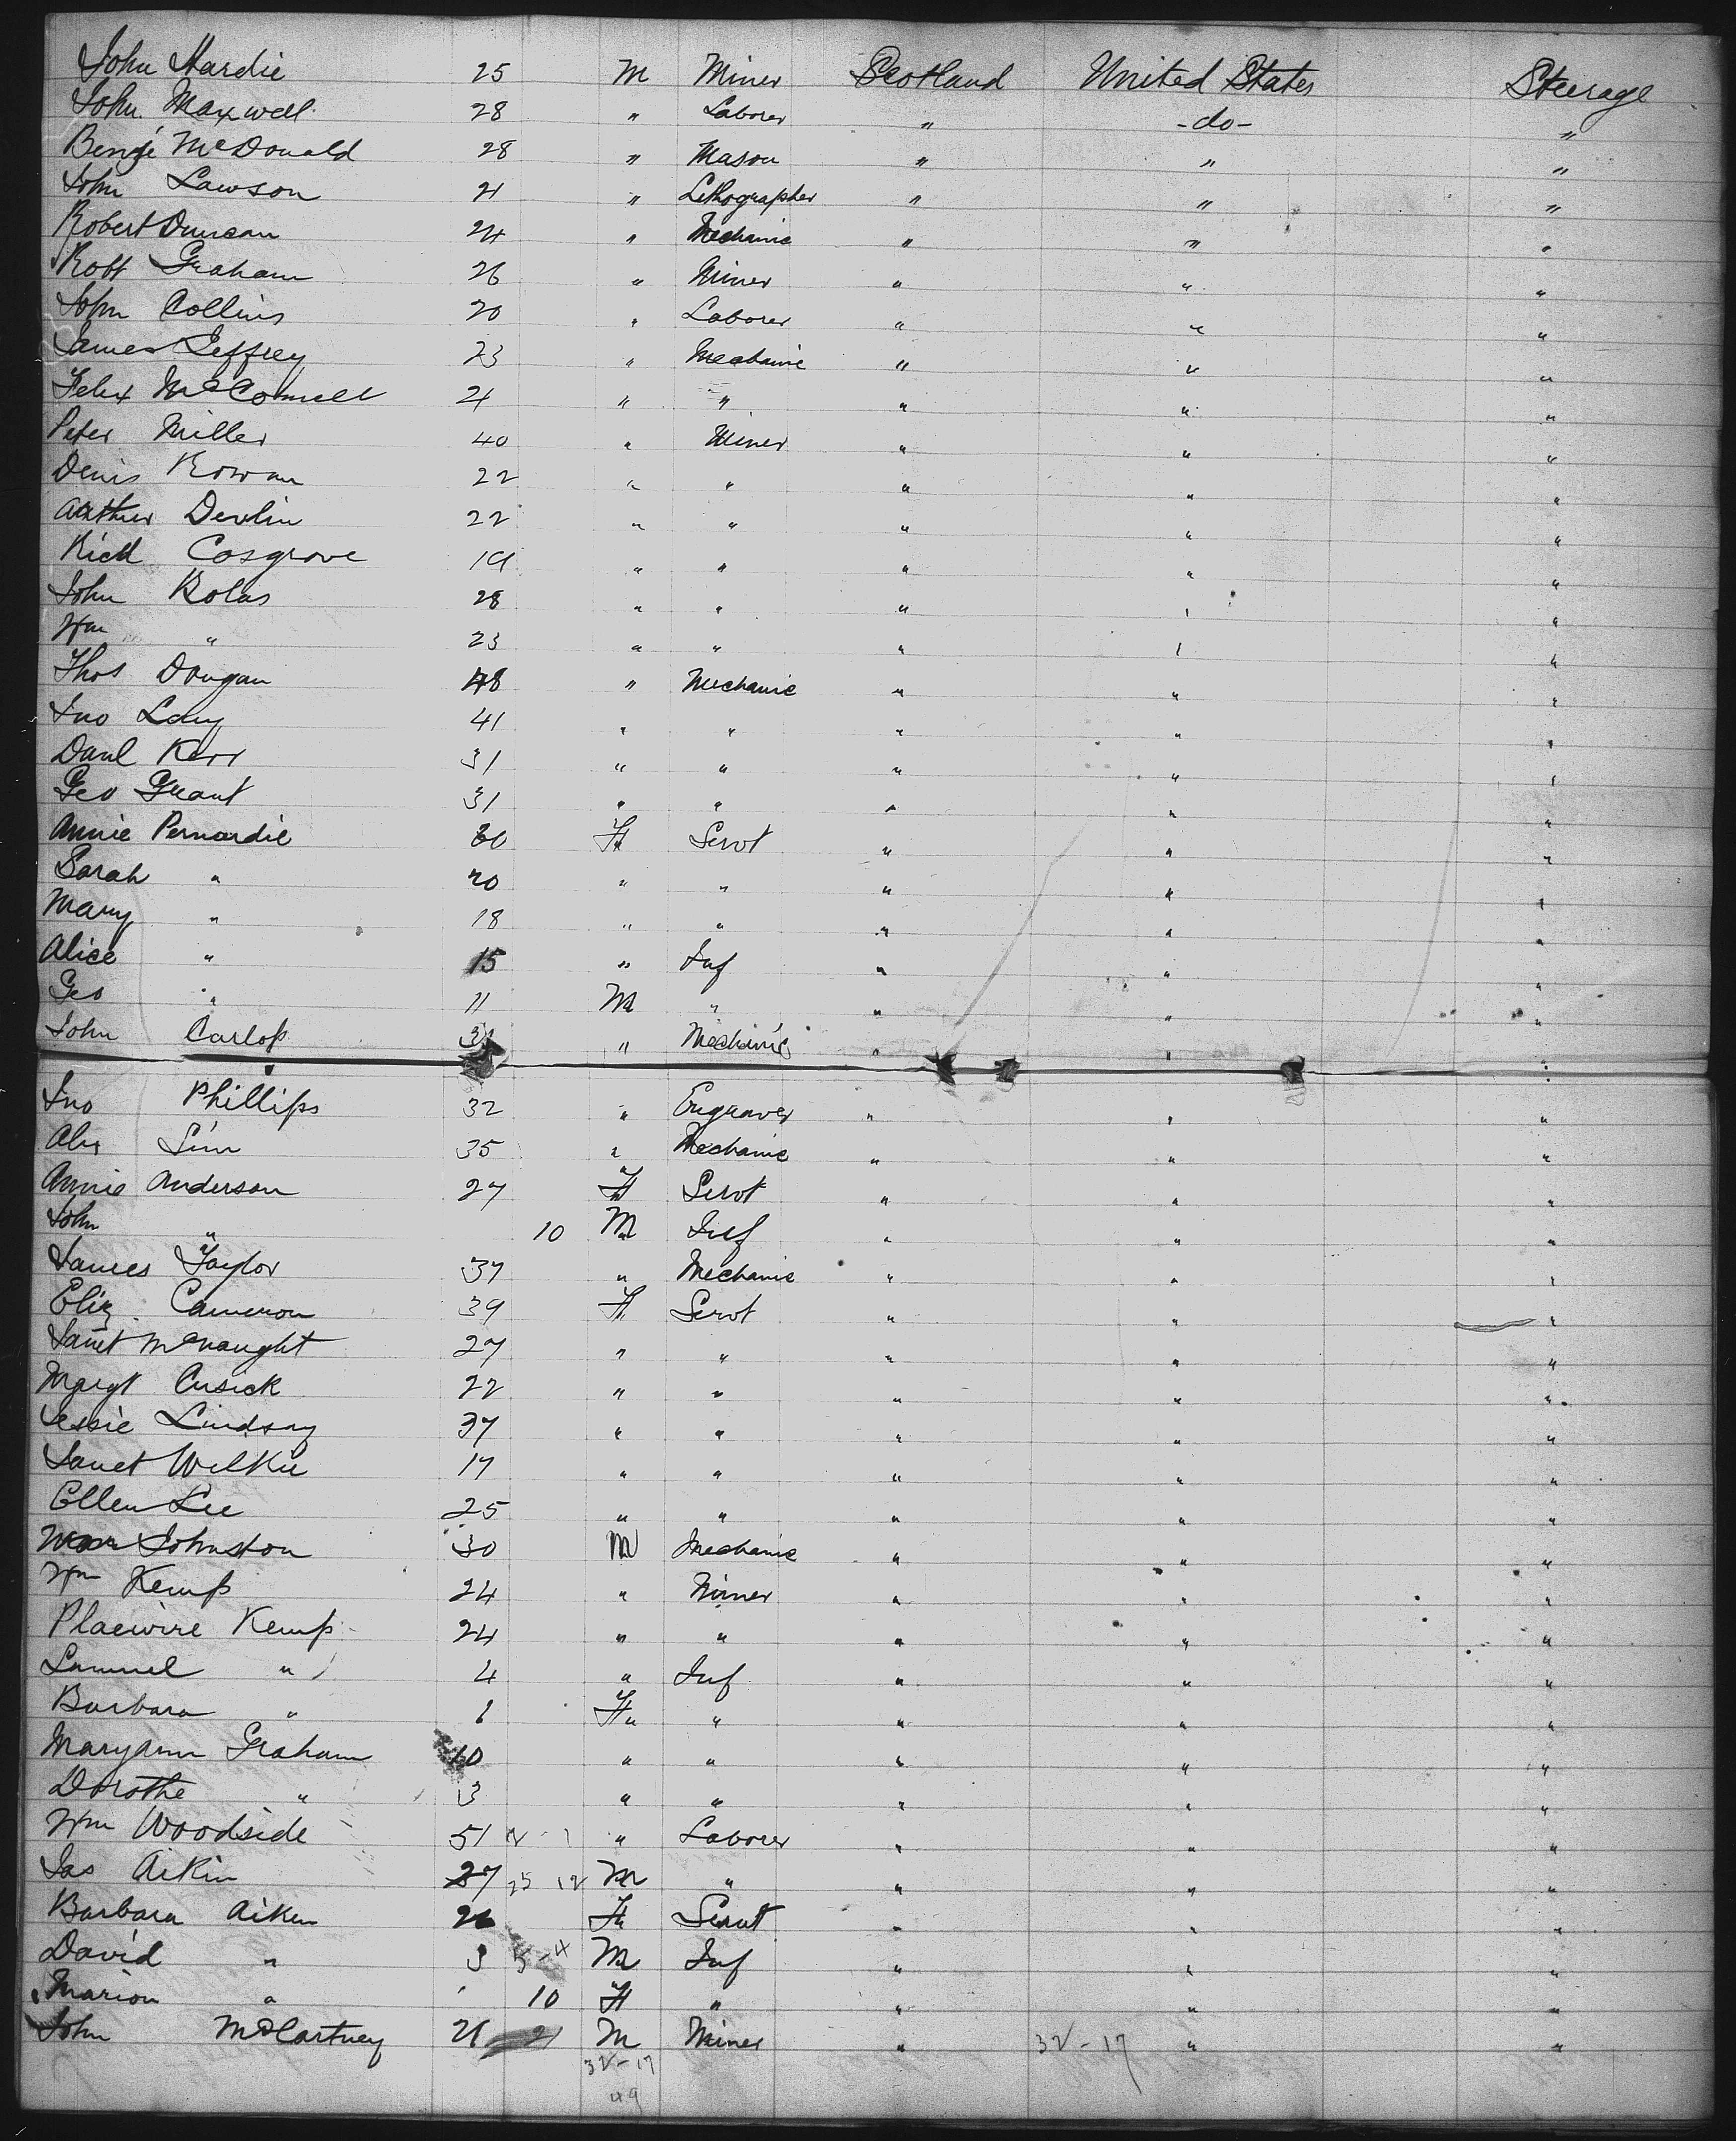 John Hardie 25 M Miner Scotland United States Steerage
John Maxwell 28 " Laborer " -do- "
Benj McDonald 28 " Mason " " "
John Lawson 21 " Lithographer " " "
Robert Duncan 24 " Mechanic " " "
Robt Graham 26 " Miner " " "
John Collins 20 " Laborer " " "
James Jeffrey 23 " Mechanic " " "
Felix McConnell 21 " " " " "
Peter Miller 40 " Miner " " "
Denis Rowan 22 " " " " "
Arthur Devlin 22 " " " " "
Richd Cosgrove 19 " " " " "
John Bolas 28 " " " " "
Wm " 23 " " " " "
Thos Dougan 48 " Mechanic " " "
Jno Lang 41 " " " " "
Danl Kerr 31 " " " " "
Geo Grant 31 " " " " "
Annie Pernardie 60 F Servt " " "
Sarah " 20 " " " " "
Mary " 18 " " " " "
Alice " 15 " Inf " " "
Geo " 11 M " " " "
John Carlop " Mechanic " " "
Jno Phillips 32 " Engraver " " "
Alex Sim 35 " Mechanic " " "
Annie Anderson 27 F Servt " " "
John " 10 M Inf " " "
James Taylor 37 " Mechanic " " "
Eliz Cameron 39 F Servt " " "
Janet McNaught 27 " " " " "
Margt Cusick 22 " " " " "
Jessie Lindsay 37 " " " " "
Janet Wilkie 17 " " " " "
Ellen Lee 25 " " " " "
Johnston 30 M Mechanic " " "
Wm Kemp 24 " Miner " " "
Kemp 24 " " " " "
Samuel " 4 " Inf " " "
Barbara " 1 F " " " "
Maryann Graham 10 " " " " "
Dorothe " 3 " " " " "
Wm Woodside 51 " Laborer " " "
Jas Aikin 27 25 12 M " " " "
Barbara Aiken 26 F Servt " " "
David " 3 M Inf " " "
Marion " 10 F " " " "
John McCartney 21 21 M Miner " 32-17 " "
32-17
49